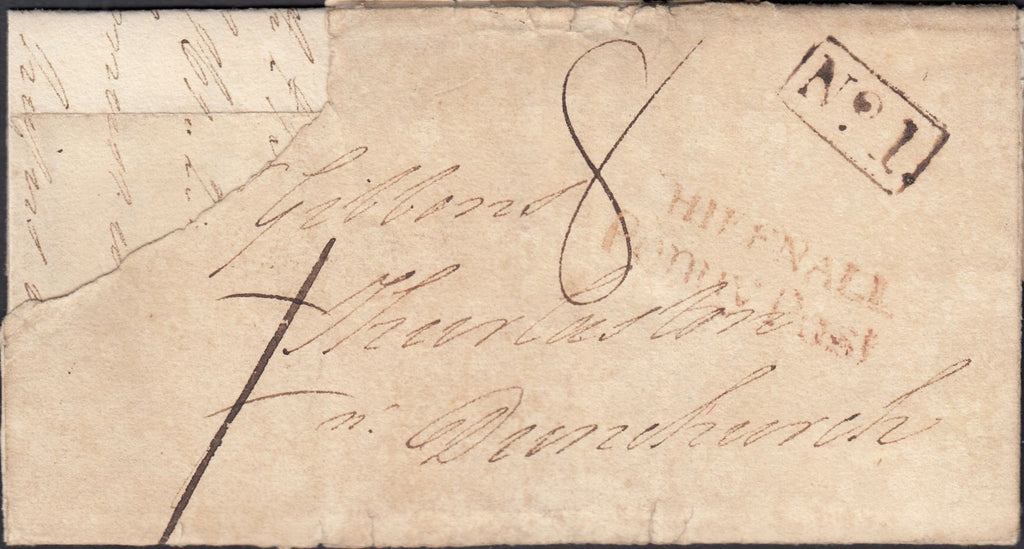 No. 1.
8
HIFFNALL
Penny Post
Gibbons
Thurlaston
nr. Dunchurch